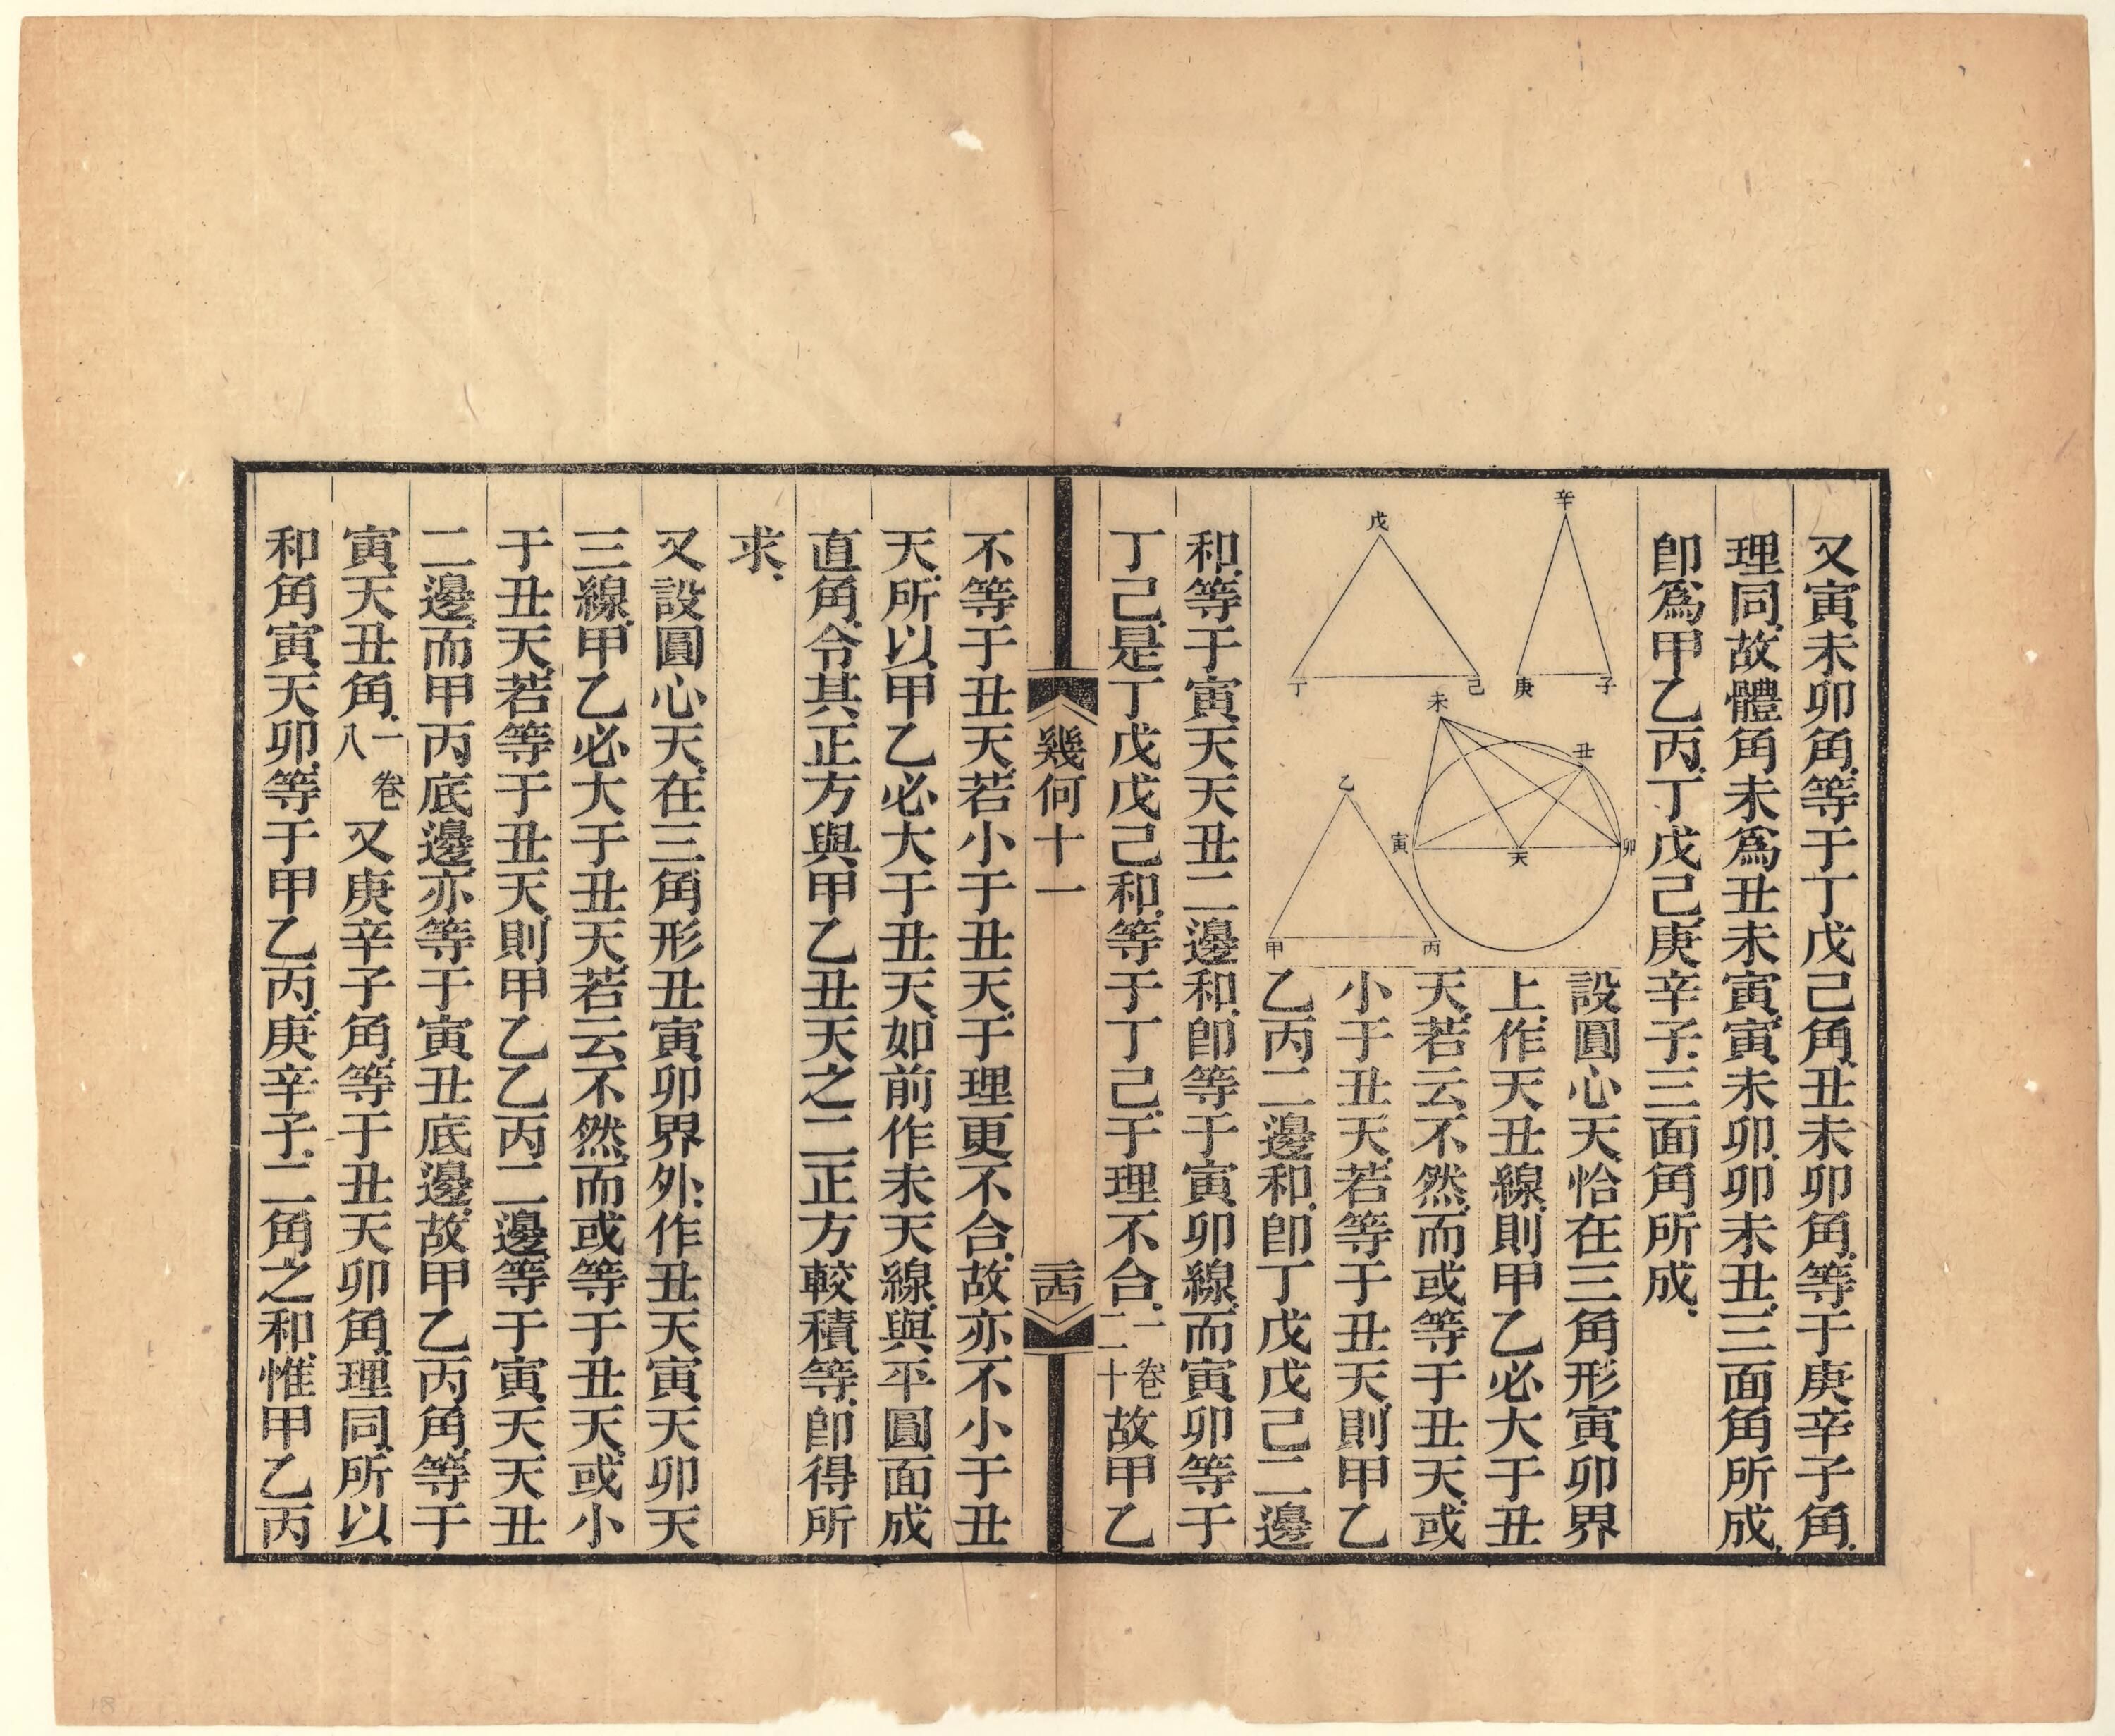 又寅未卯角等于丁戊己角丑未卯角等于庚辛子角
理同故體角未爲丑未寅寅未卯卯未丑三面角所成
卽爲甲乙丙丁戊己庚辛子三面角所成
辛
庚
子
戊
丁
己
未
丑
寅
天
卯
乙
甲
丙
設圓心天恰在三角形寅卯界
上作天丑線則甲乙必大于丑
天若云不然而或等于丑天或
小于丑天若等于丑天則甲乙
乙丙二邊和卽丁戊戊己二邊
和等于寅天天丑二邊和卽等于寅卯線而寅卯等于
丁己是丁戊戊己和等于丁己于理不合一卷二十故甲乙
幾何十一
不等于丑天若小于丑天于理更不合故亦不小于丑
天所以甲乙必大于丑天如前作未天線與平圓面成
直角令其正方與甲乙丑天之二正方較積等卽得所
求
又設圓心天在三角形丑寅卯界外作丑天寅天卯天
三線甲乙必大于丑天若云不然而或等于丑天或小
于丑天若等于丑天則甲乙乙丙二邊等于寅天天丑
二邊而甲丙底邊亦等于寅丑底邊故甲乙丙角等于
寅天丑角一卷八又庚辛子角等于丑天卯角理同所以
和角寅天卯等于甲乙丙庚辛子二角之和惟甲乙丙